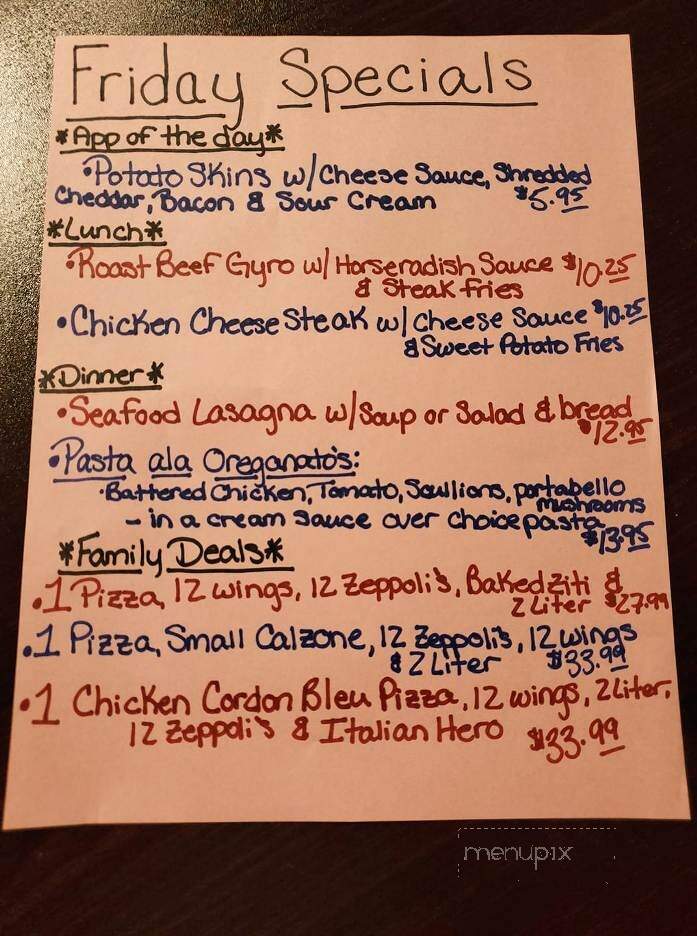 Friday Specials
*App of the day*
•Potato Skins w/ Cheese Sauce, Shredded
Cheddar, Bacon & Sour Cream $5.95
*Lunch*
•Roast Beef Gyro w/ Horseradish Sauce $10.25
& Steak fries
•Chicken Cheese Steak w/ Cheese Sauce $10.25
& Sweet Potato Fries
*Dinner*
•Seafood Lasagna w/ Soup or Salad & bread
$12.95
•Pasta ala Oreganato's:
•Battered Chicken, Tomato, Scullions, portabello
mushrooms
- in a cream sauce over choice pasta
$13.95
*Family Deals*
•1 Pizza, 12 wings, 12 Zeppoli's, Baked Ziti &
2 Liter $27.99
•1 Pizza, Small Calzone, 12 Zeppoli's, 12 wings
& 2 Liter $33.99
•1 Chicken Cordon Bleu Pizza, 12 wings, 2 Liter,
12 Zeppoli's & Italian Hero $33.99
menupix